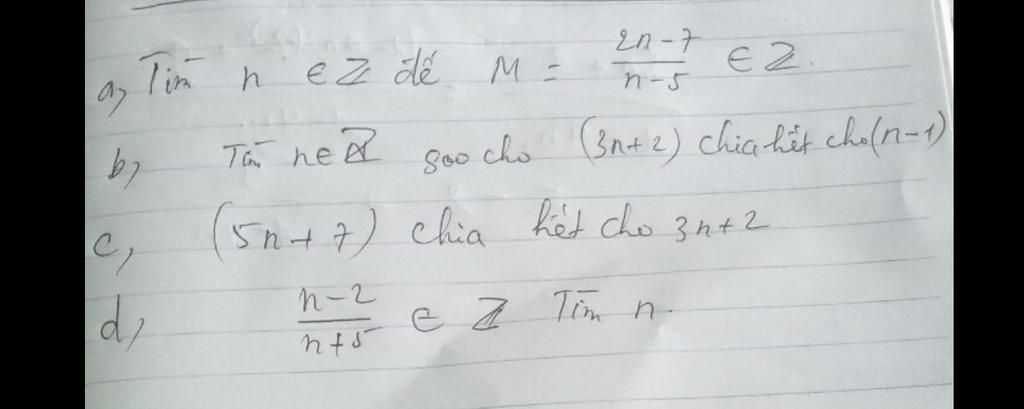 a, Tìm n ∈ Z để M = \frac{2n-7}{n-5} ∈ Z.
b, Tìm n ∈ Z sao cho (3n+2) chia hết cho (n-1)
c, (5n+7) chia hết cho 3n+2
d, \frac{n-2}{n+5} ∈ Z Tìm n.